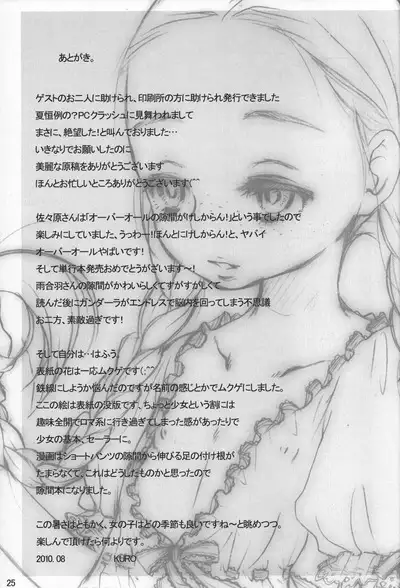 あとがき。
ゲストのお二人に助けられ、印刷所の方に助けられ発行できました
夏恒例の？PCクラッシュに見舞われまして
まさに、絶望した！と叫んでおりました…
いきなりでお願いしたのに
美麗な原稿をありがとうございます
ほんとお忙しいところありがとうございます(^^
佐々原さんは「オーバーオールの隙間がけしからん！」という事でしたので
楽しみにしていました、うっわー！ほんとにけしからん！と、ヤバイ
オーバーオールやばいです！
そして単行本発売おめでとうがざいます～！
雨合羽さんの隙間がかわいらしくてすがすがしくて
読んだ後にガンダーラがエンドレスで脳内を回ってしまう不思議
お二方、素敵過ぎです！
そして自分は…はふう。
表紙の花は一応ムクゲです(;^^
鉄線にしようか悩んだのですが名前の感じとかでムクゲにしました。
ここの絵は表紙の没版です、ちょっと少女という割には
趣味全開でロマ系に行き過ぎてしまった感があったりで
少女の基本、セーラーに。
漫画はショートパンツの隙間から伸びる足の付け根が
たまらなくて、これはどうしたものかと思ったので
隙間本になりました。
この暑さはともかく、女の子はどの季節も良いですね～と眺めつつ。
楽しんで頂けたら何よりです。
2010.08 KURO
25